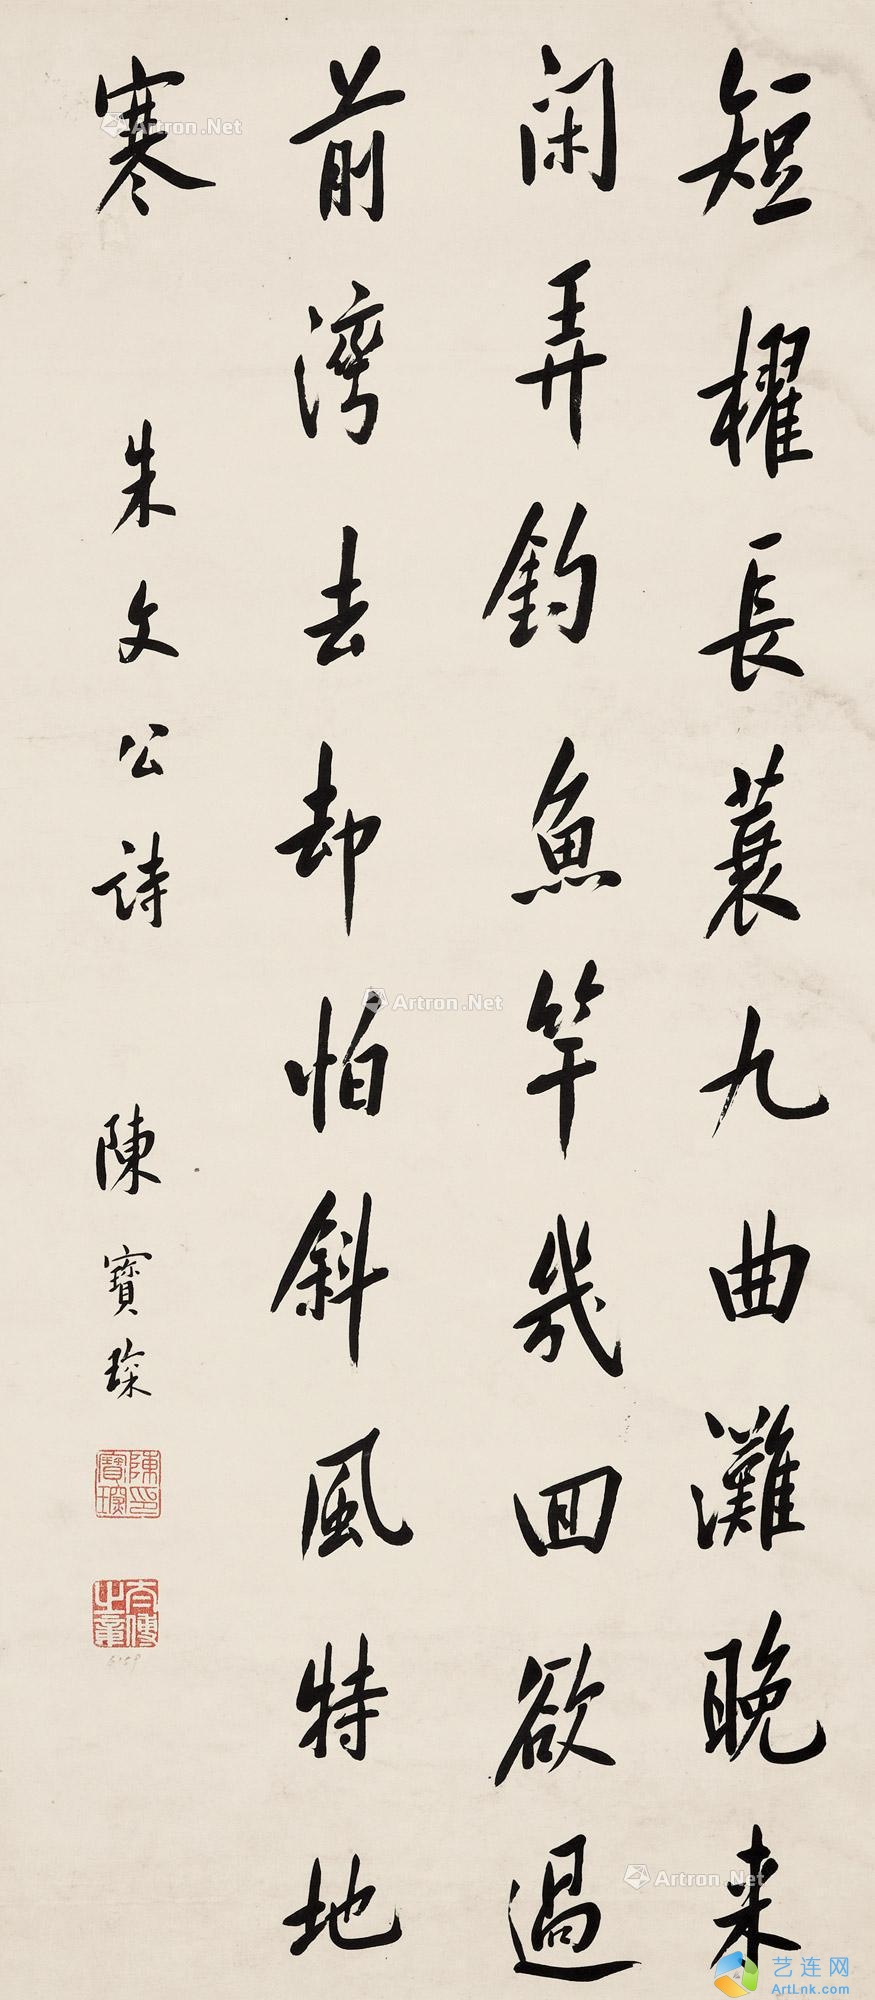 短櫂長蓑九曲灘晚来
闲弄釣魚竿幾回欲過
前灣去却怕斜風特地
寒
朱文公詩
陳寶琛
陳寶琛印
太傅之章
Artron.Net
Artron.Net
Artron.Net
艺连网
ArtLnk.com